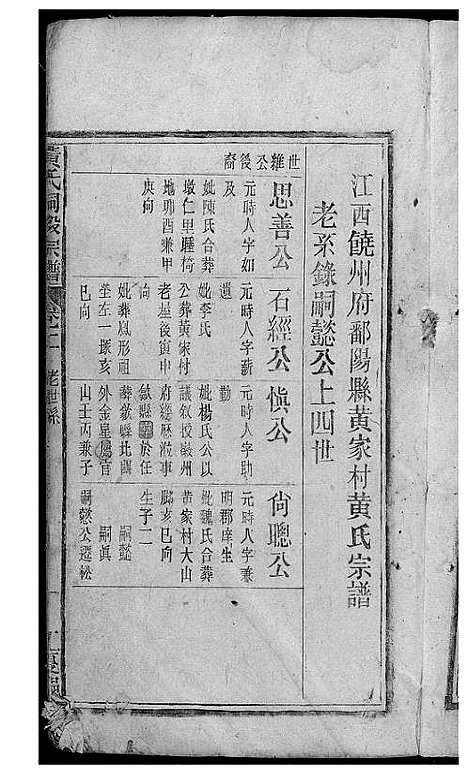 江西饒州府鄱陽縣黃家村黃氏宗譜
老系錄嗣懿公上四世
世雜公後裔
思善公
元時人字如
及
妣陳氏合葬
墩仁里騎椅
地卯酉兼甲
庚向
石經公
元時人字薪
遺
妣李氏
公葬黃家村
老屋後寅申
向
妣葬鳳形祖
坐左一琢亥
巳向
慎公
元時人字助
勳
妣楊氏公以
議叙授徽州
府經歷淑事
歙縣於任
葬歙縣北關
外金星
山壬丙兼子
尙聰公
元時人字兼
明郡庠生
妣魏氏合葬
黃家村大山
腳亥巳向
生子二
嗣懿
嗣眞
嗣懿公遷松
黃氏洞股宗譜
卷二
老世系